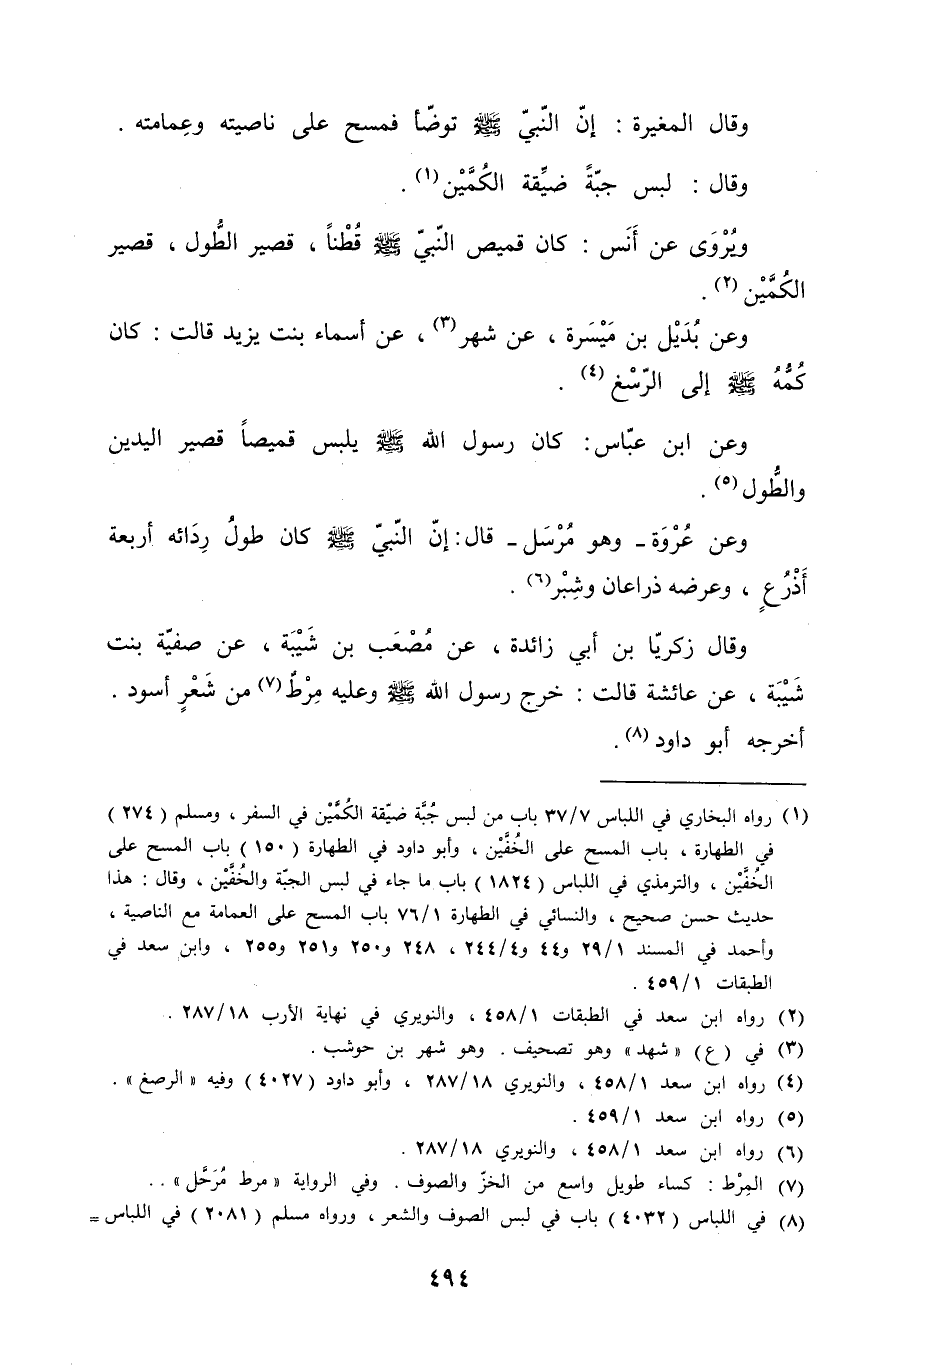 وقال المغيرة : إنّ النّبيّ ﷺ توضّأ فمسح على ناصيته وعِمامته .
وقال : لبس جبّةً ضيِّقة الكُمَّيْن(١) .
ويُرْوَى عن أَنَس : كان قميص النّبيّ ﷺ قُطْناً ، قصير الطُّول ، قصير
الكُمَّيْن(٢) .
وعن بُدَيْل بن مَيْسَرة ، عن شهر(٣) ، عن أسماء بنت يزيد قالت : كان
كُمُّهُ ﷺ إلى الرّسْغ(٤) .
وعن ابن عبّاس : كان رسول الله ﷺ يلبس قميصاً قصير اليدين
والطُّول(٥) .
وعن عُرْوَة ـ وهو مُرْسَل ـ قال : إنّ النّبيّ ﷺ كان طولُ رِدَائه أربعة
أَذْرُعٍ ، وعرضه ذراعان وشِبْر(٦) .
وقال زكريّا بن أبي زائدة ، عن مُصْعَب بن شَيْبَة ، عن صفيّة بنت
شَيْبَة ، عن عائشة قالت : خرج رسول الله ﷺ وعليه مِرْطٌ(٧) من شَعْرٍ أسود .
أخرجه أبو داود(٨) .
(١) رواه البخاري في اللباس ٣٧/٧ باب من لبس جُبَّة ضيّقة الكُمَّيْن في السفر ، ومسلم (٢٧٤)
في الطهارة ، باب المسح على الخُفَّيْن ، وأبو داود في الطهارة (١٥٠) باب المسح على
الخُفَّيْن ، والترمذي في اللباس (١٨٢٤) باب ما جاء في لبس الجبّة والخُفَّيْن ، وقال : هذا
حديث حسن صحيح ، والنسائي في الطهارة ٧٦/١ باب المسح على العمامة مع الناصية ،
وأحمد في المسند ٢٩/١ و٤٤ و٢٤٤/٤ ، ٢٤٨ و٢٥٠ و٢٥١ و٢٥٥ ، وابن سعد في
الطبقات ٤٥٩/١ .
(٢) رواه ابن سعد في الطبقات ٤٥٨/١ ، والنويري في نهاية الأرب ٢٨٧/١٨ .
(٣) في (ع) «شهد» وهو تصحيف . وهو شهر بن حوشب .
(٤) رواه ابن سعد ٤٥٨/١ ، والنويري ٢٨٧/١٨ ، وأبو داود (٤٠٢٧) وفيه «الرصغ» .
(٥) رواه ابن سعد ٤٥٩/١ .
(٦) رواه ابن سعد ٤٥٨/١ ، والنويري ٢٨٧/١٨ .
(٧) المِرْط : كساء طويل واسع من الخزّ والصوف . وفي الرواية «مرط مُرَحَّل» . .
(٨) في اللباس (٤٠٣٢) باب في لبس الصوف والشعر ، ورواه مسلم (٢٠٨١) في اللباس =
٤٩٤